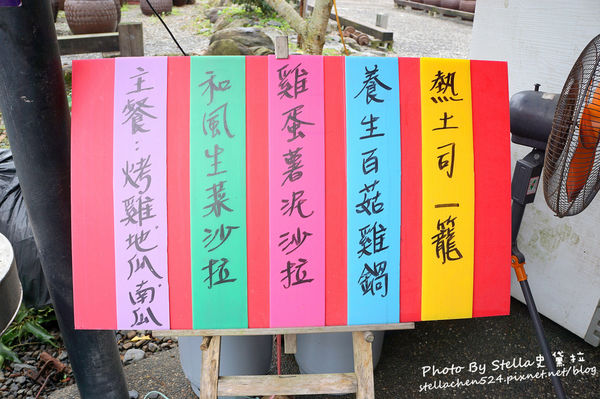 熱土司一籠
養生百菇雞鍋
雞蛋薯泥沙拉
和風生菜沙拉
主餐：烤雞地瓜南瓜
Photo By Stella史黛拉
stellachen524.pixnet.net/blog